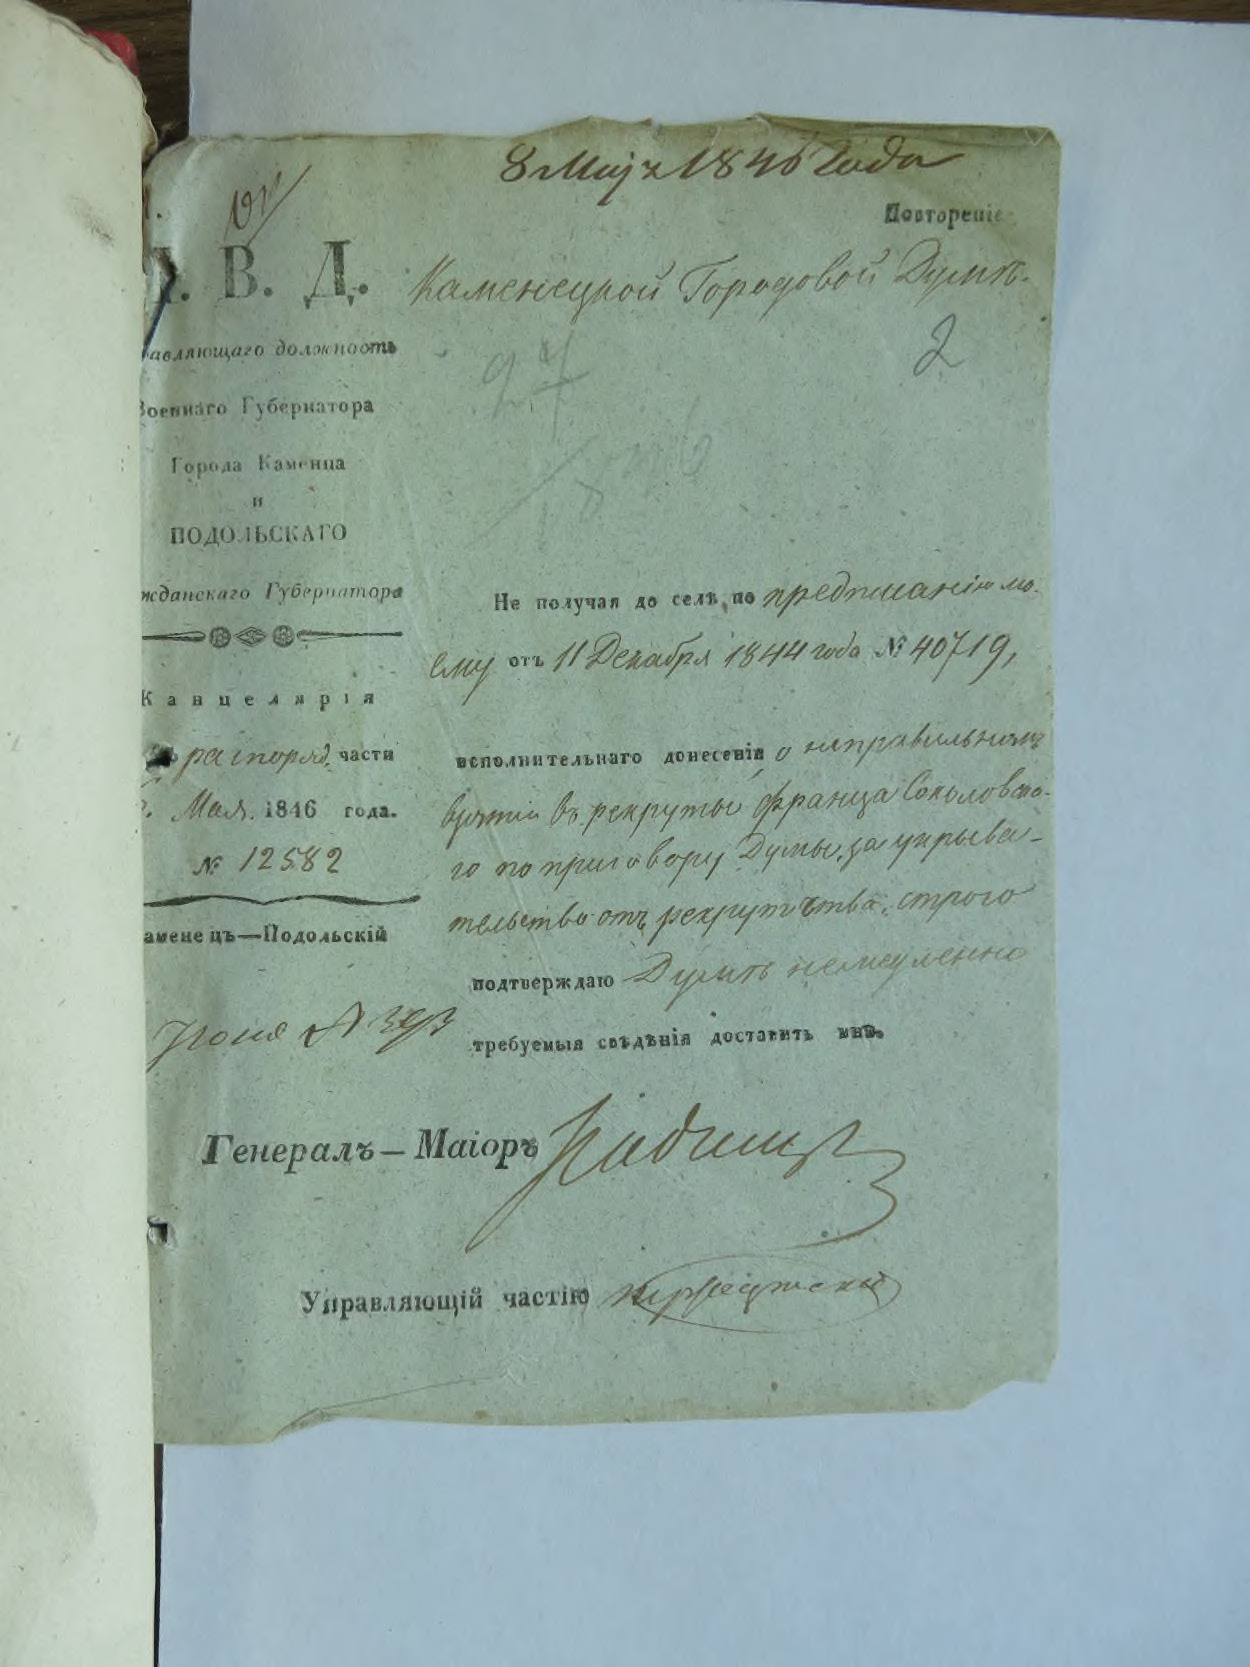 8 Мая 1846 года
Повторение
В. Д.
Каменецкой Городовой Думѣ.
2
авляющаго должность
Военнаго Губернатора
Города Каменца
и
ПОДОЛЬСКАГО
жданскаго Губернатора
Канцелярія
распоряд. части
Мая 1846 года.
№ 12582
аменецъ—Подольскій
Не получая до селѣ, по предписанію мо-
ему отъ 11 Декабря 1844 года № 40719,
исполнительнаго донесенія о неправильномъ
взятіи въ рекруты Франца Соколовска-
го по приговору Думы, за укрыва-
тельство отъ рекрутства, строго
подтверждаю Думѣ немедленно
требуемыя свѣдѣнія доставить мнѣ.
Генералъ—Маіоръ
Управляющій частію